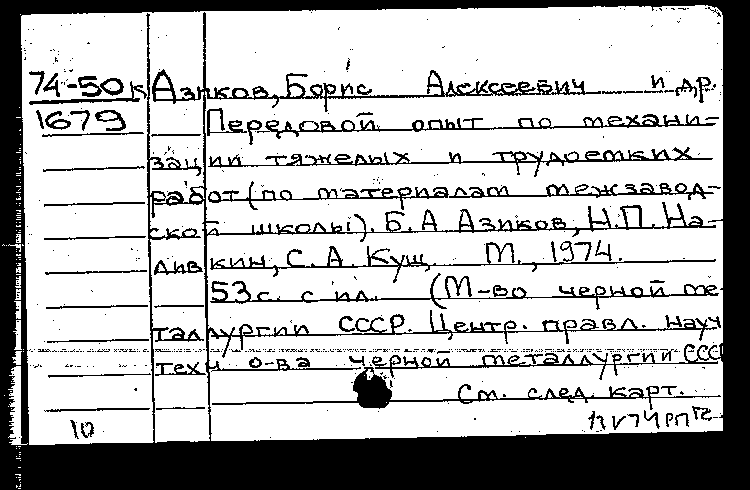 74-50к Азиков, Борис Алексеевич и др.
1679 Передовой опыт по механи-
зации тяжелых и трудоемких
работ (по материалам межзавод-
ской школы). Б. А Азиков, Н.П. На-
дивкин, С. А. Кущ. М., 1974.
53с. с ил. (М-во черной ме-
таллургии СССР. Центр. правл. науч
техн о-ва черной металлургии СССР
См. след. карт.
10